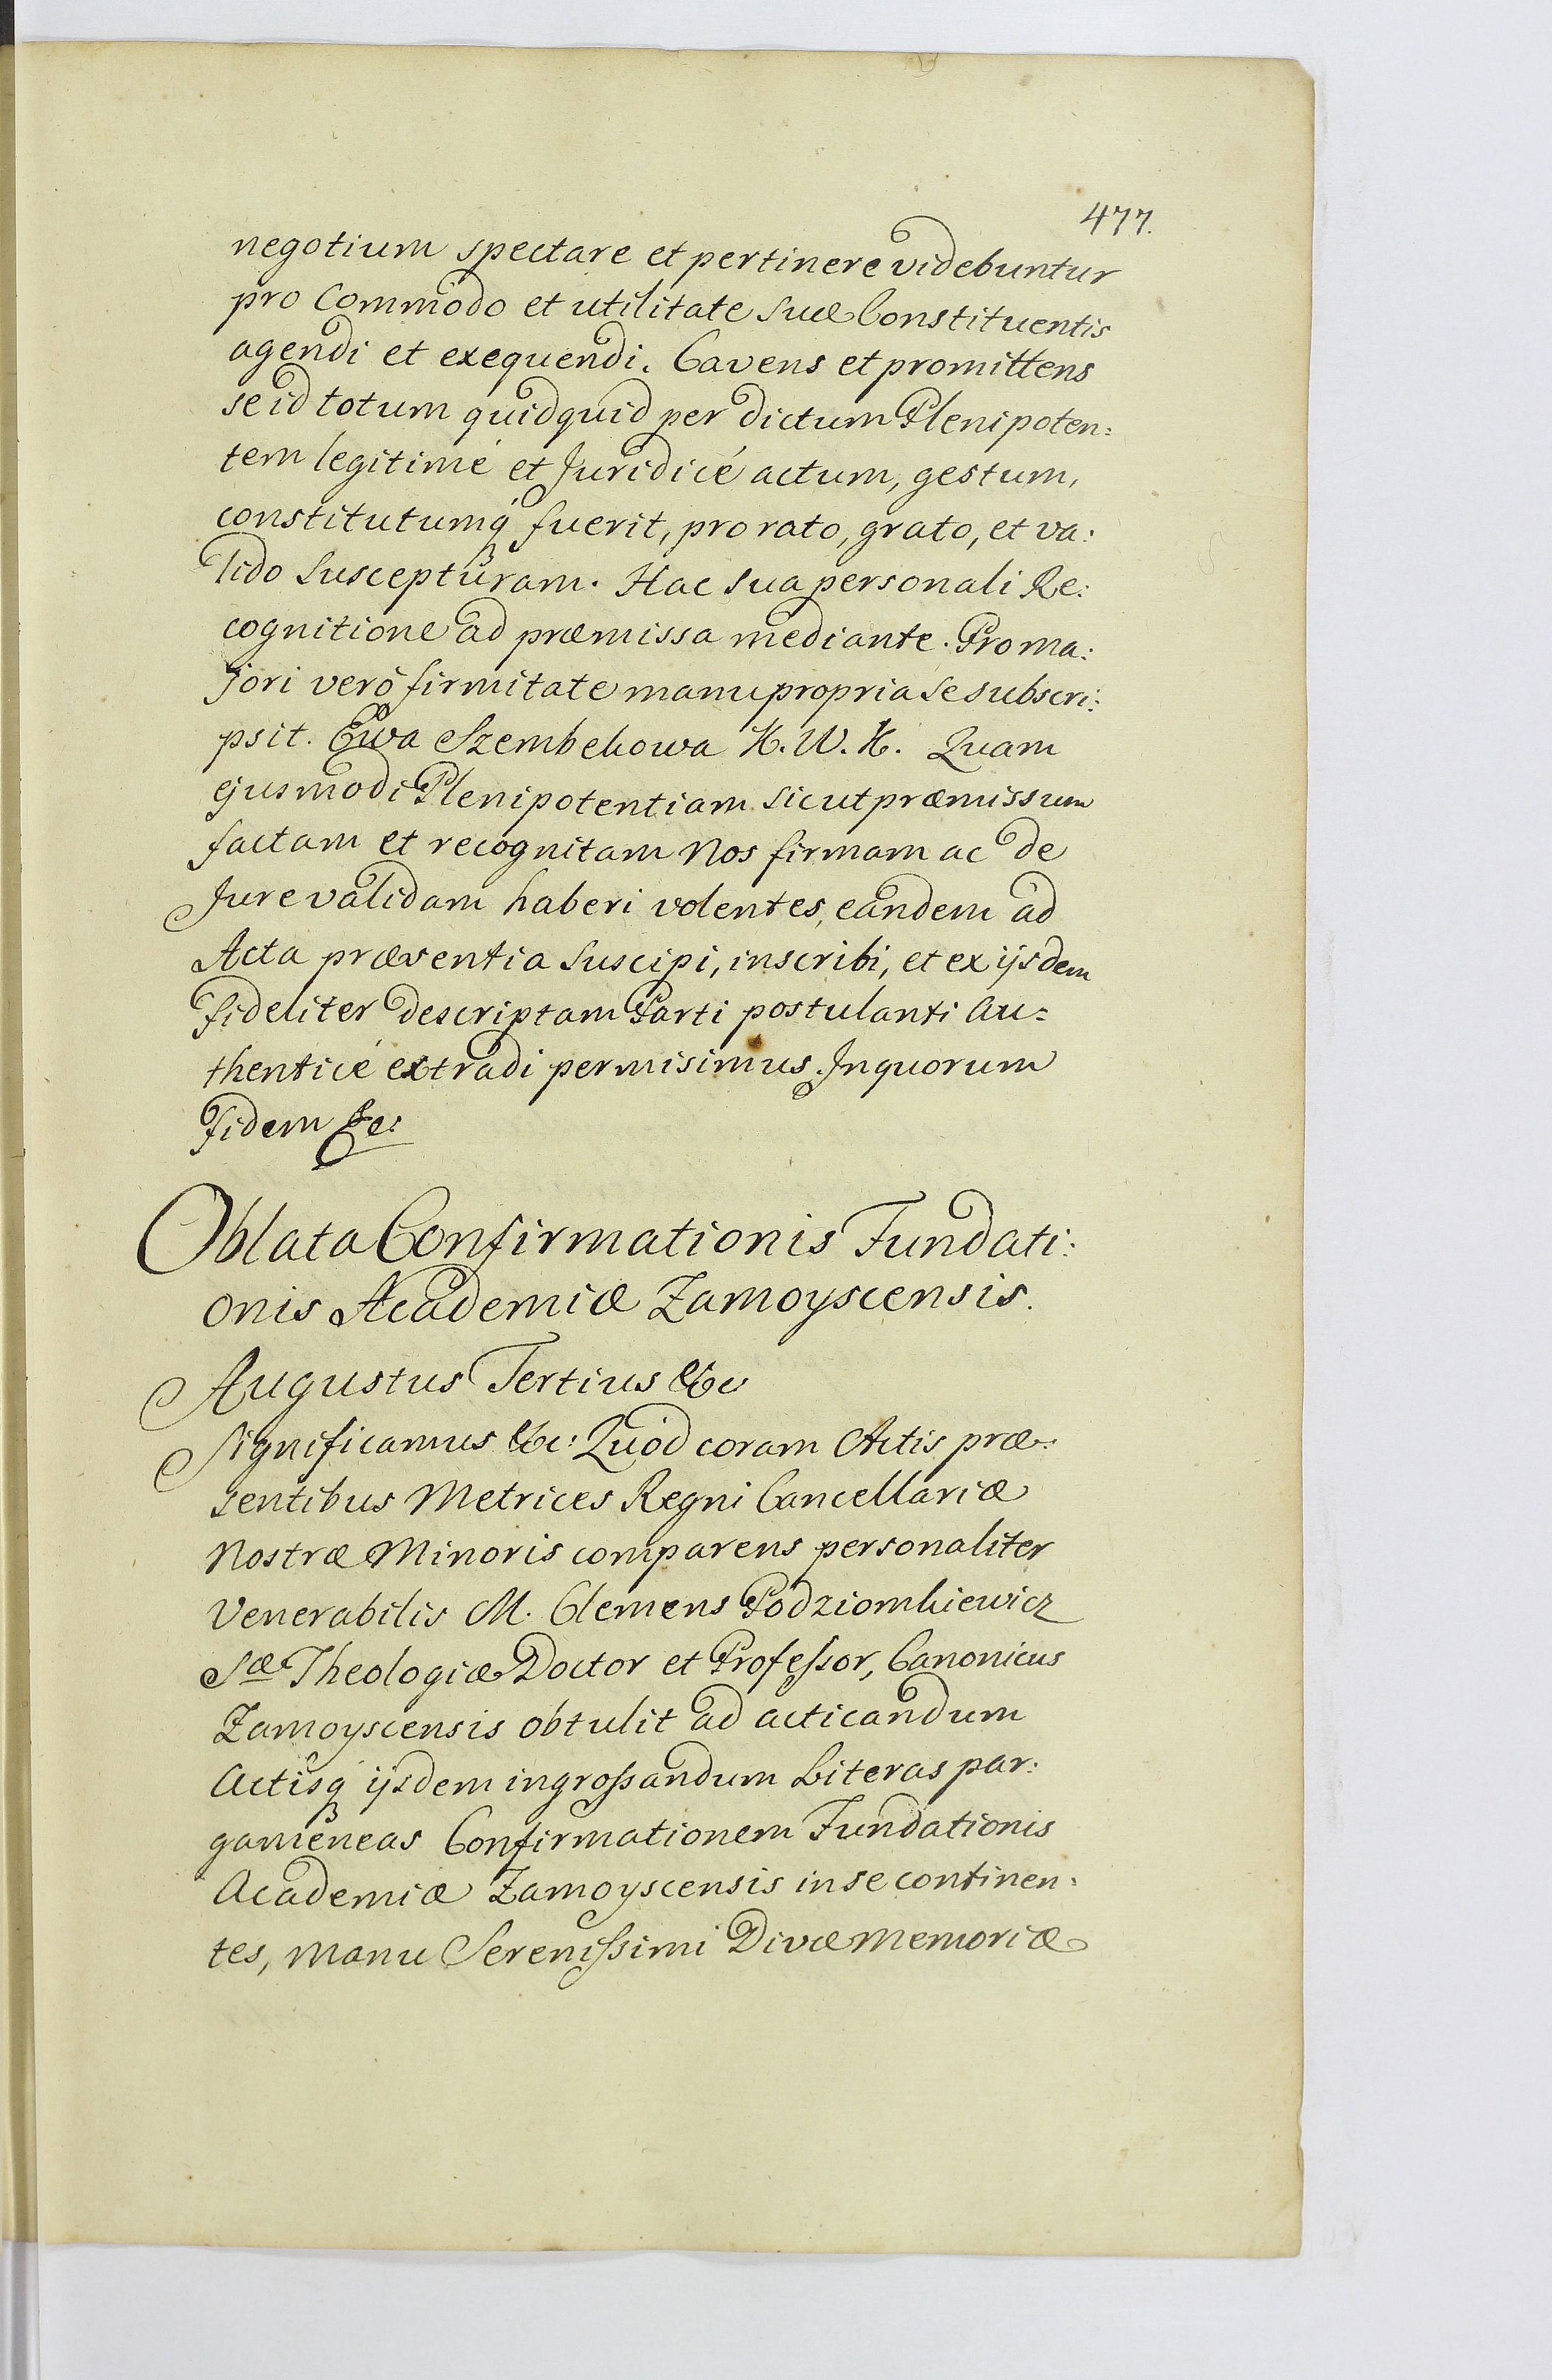 477.
negotium spectare et pertinere videbuntur
pro Commodo et utilitate suæ Constituentis
agendi et exequendi. Cavens et promittens
se id totum quidquid per dictum Plenipoten:
tem legitimé et Juridicé actum, gestum,
constitutumq́ fuerit, pro rato, grato, et va:
lido suscepturam. Hac sua personali Re:
cognitione ad præmissa mediante. Pro ma:
jori verò firmitate manu propria se subscri:
psit. Ewa Szembekowa K. W. K. Quam
ejusmodi Plenipotentiam sicut præmissum
factam et recognitam Nos firmam ac de
Jure validam haberi volentes, eandem ad
Acta præsentia suscipi, inscribi, et ex ijsdem
fideliter descriptam Parti postulanti Au=
thenticé extradi permisimus. In quorum
fidem &c:
Oblata Confirmationis Fundati:
onis Academiæ Zamoyscensis.
Augustus Tertius &c
Significamus &c: Quòd coram Actis præ:
sentibus Metrices Regni Cancellariæ
Nostræ Minoris comparens personaliter
Venerabilis M. Clemens Podziomkiewicz
Sæ Theologiæ Doctor et Professor, Canonicus
Zamoyscensis obtulit ad acticandum
Actisq ijsdem ingrossandum Literas par:
gameneas Confirmationem Fundationis
Academiæ Zamoyscensis in se continen:
tes, Manu Serenissimi Divæ Memoriæ